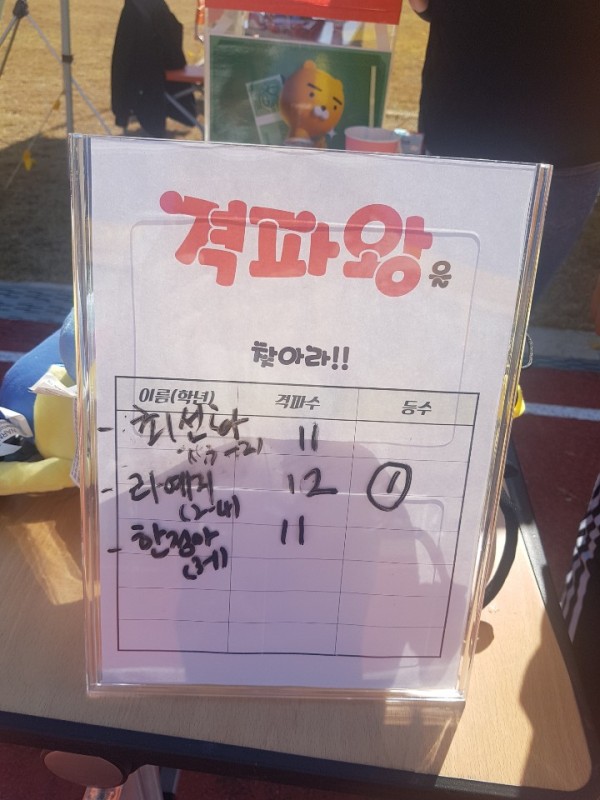 격파왕을
찾아라!!
이름(학년) 격파수 등수
- 최선아 11
- 라예지 12 ①
- 한정아 11